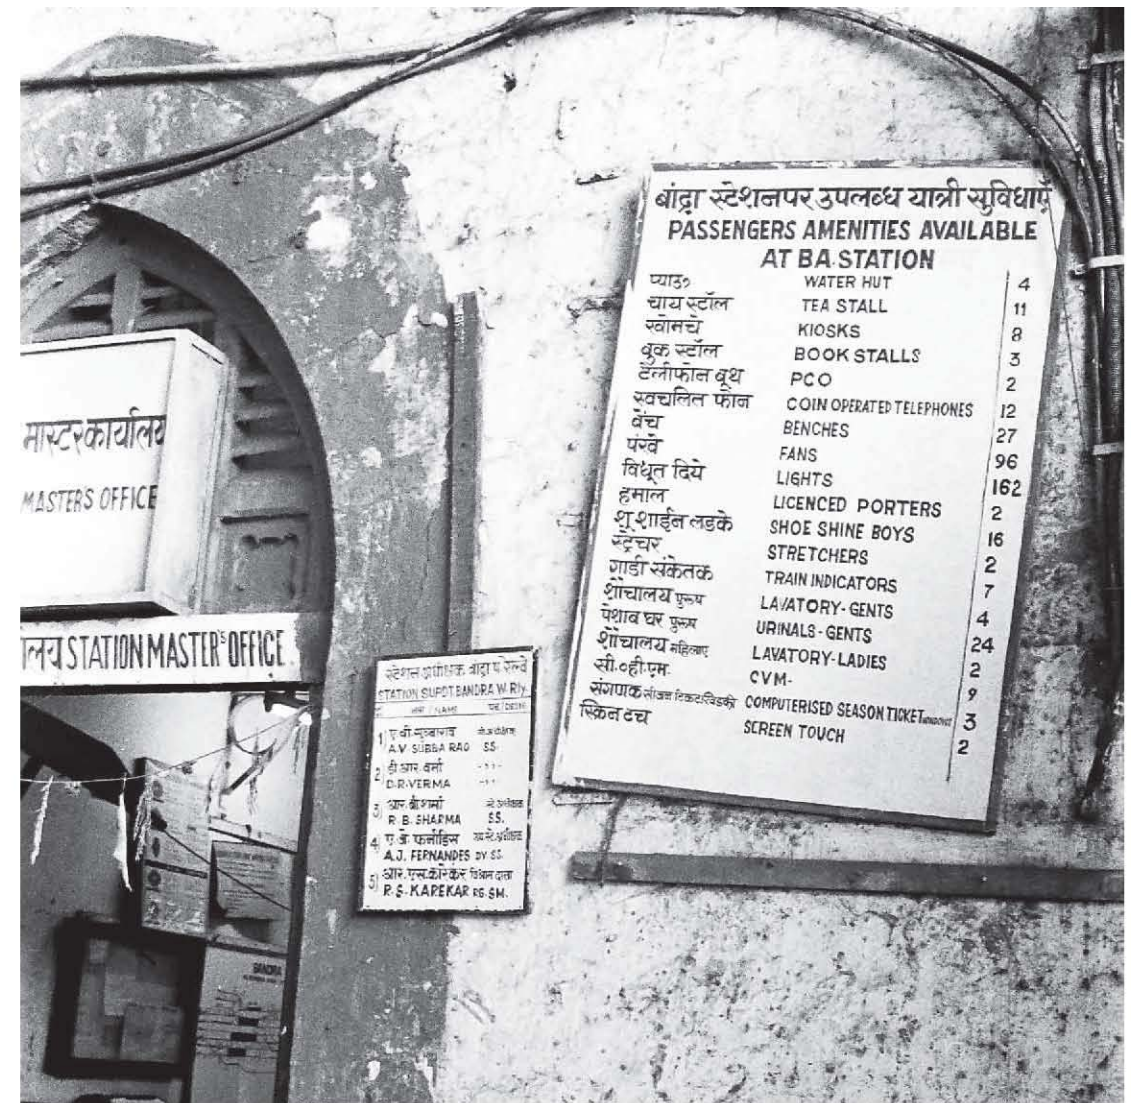 मास्टर कार्यालय
MASTER'S OFFICE
लय STATION MASTER'S OFFICE
स्टेशन अधीक्षक बांद्रा प रेल्वे
STATION SUPDT. BANDRA W. Rly.
NAME
1) ए वी सुब्बाराव
A.V. SUBBA RAO SS.
2) डी आर वर्मा -,,-
D.R. VERMA -,,-
3) आर. बी शर्मा
R. B. SHARMA SS.
4) ए. जे. फर्नांडिस
A.J. FERNANDES DY. SS.
5) आर. एस. कारेकर
R. S. KAREKAR RG. SM.
BANDRA
बांद्रा स्टेशनपर उपलब्ध यात्री सुविधाएँ
PASSENGERS AMENITIES AVAILABLE
AT BA. STATION
प्याऊ WATER HUT 4
चाय स्टॉल TEA STALL 11
खोमचे KIOSKS 8
बुक स्टॉल BOOK STALLS 3
टेलीफोन बूथ PCO 2
स्वचलित फोन COIN OPERATED TELEPHONES 12
बेंच BENCHES 27
पंखे FANS 96
विधूत दिये LIGHTS 162
हमाल LICENCED PORTERS 2
शू शाईन लडके SHOE SHINE BOYS 16
स्ट्रेचर STRETCHERS 2
गाडी संकेतक TRAIN INDICATORS 7
शौचालय पुरूष LAVATORY - GENTS 4
पेशाब घर पुरूष URINALS - GENTS 24
शौचालय महिलाए LAVATORY - LADIES 2
सी.व्ही.एम. CVM - 9
संगणक सीजन टिकट खिडकी COMPUTERISED SEASON TICKET WINDOWS 3
स्क्रिन टच SCREEN TOUCH 2